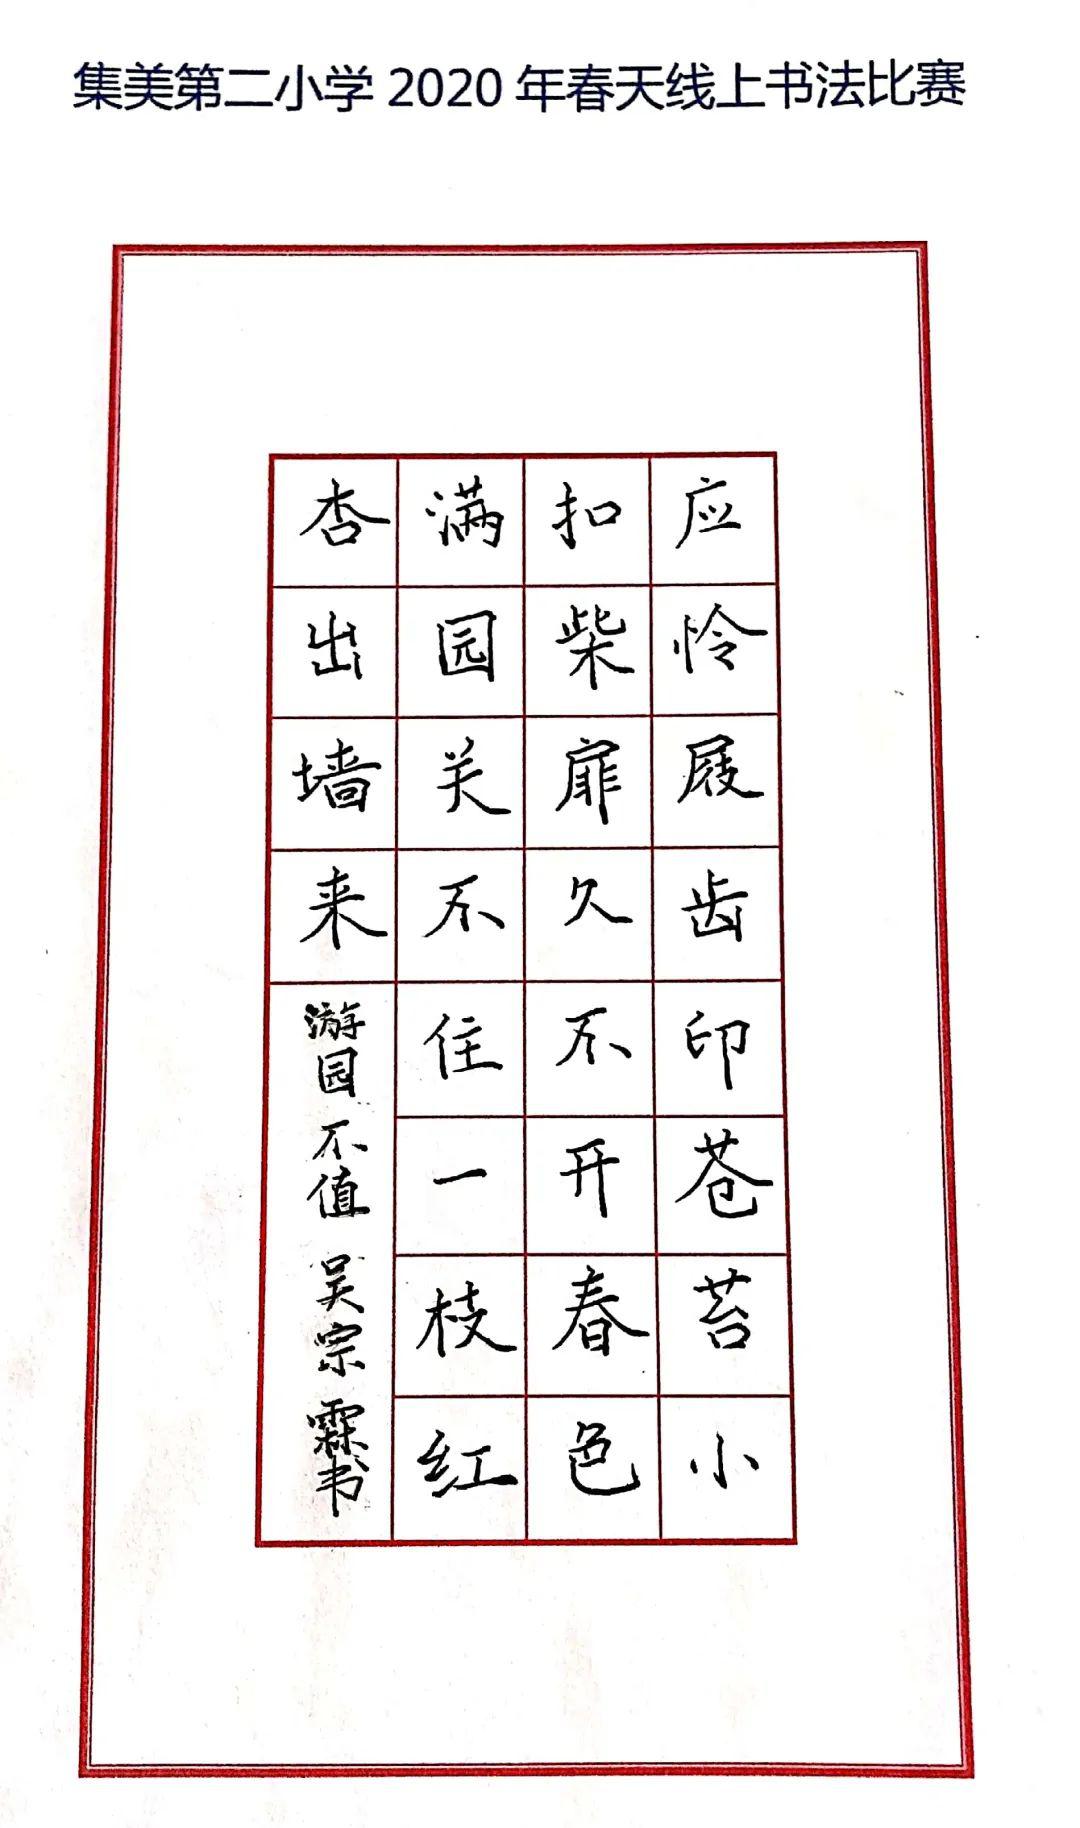 集美第二小学2020年春天线上书法比赛
应怜屐齿印苍苔小
扣柴扉久不开春色
满园关不住一枝红
杏出墙来
游园不值 吴宗霖书